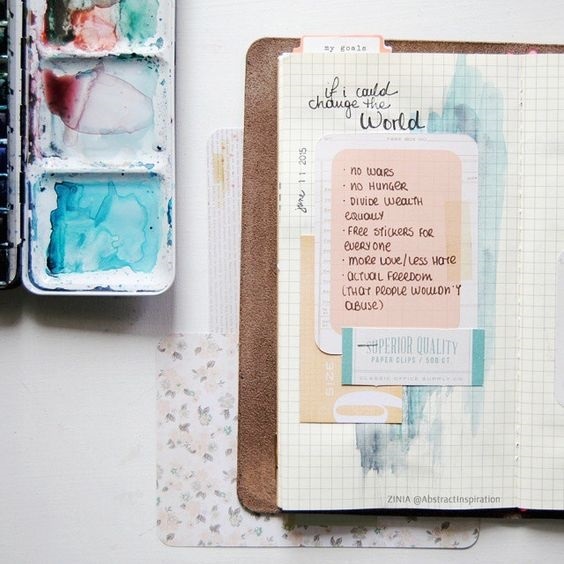 my goals
if i could
change the
World
june 11 2015
· NO WARS
· NO HUNGER
· DIVIDE WEALTH
EQUALLY
· FREE STICKERS FOR
EVERYONE
· MORE LOVE/LESS HATE
· ACTUAL FREEDOM
(THAT PEOPLE WOULDN'T
ABUSE)
SUPERIOR QUALITY
PAPER CLIPS / 500 CT
CLASSIC OFFICE SUPPLY CO.
SIZE
9
ZINIA @AbstractInspiration